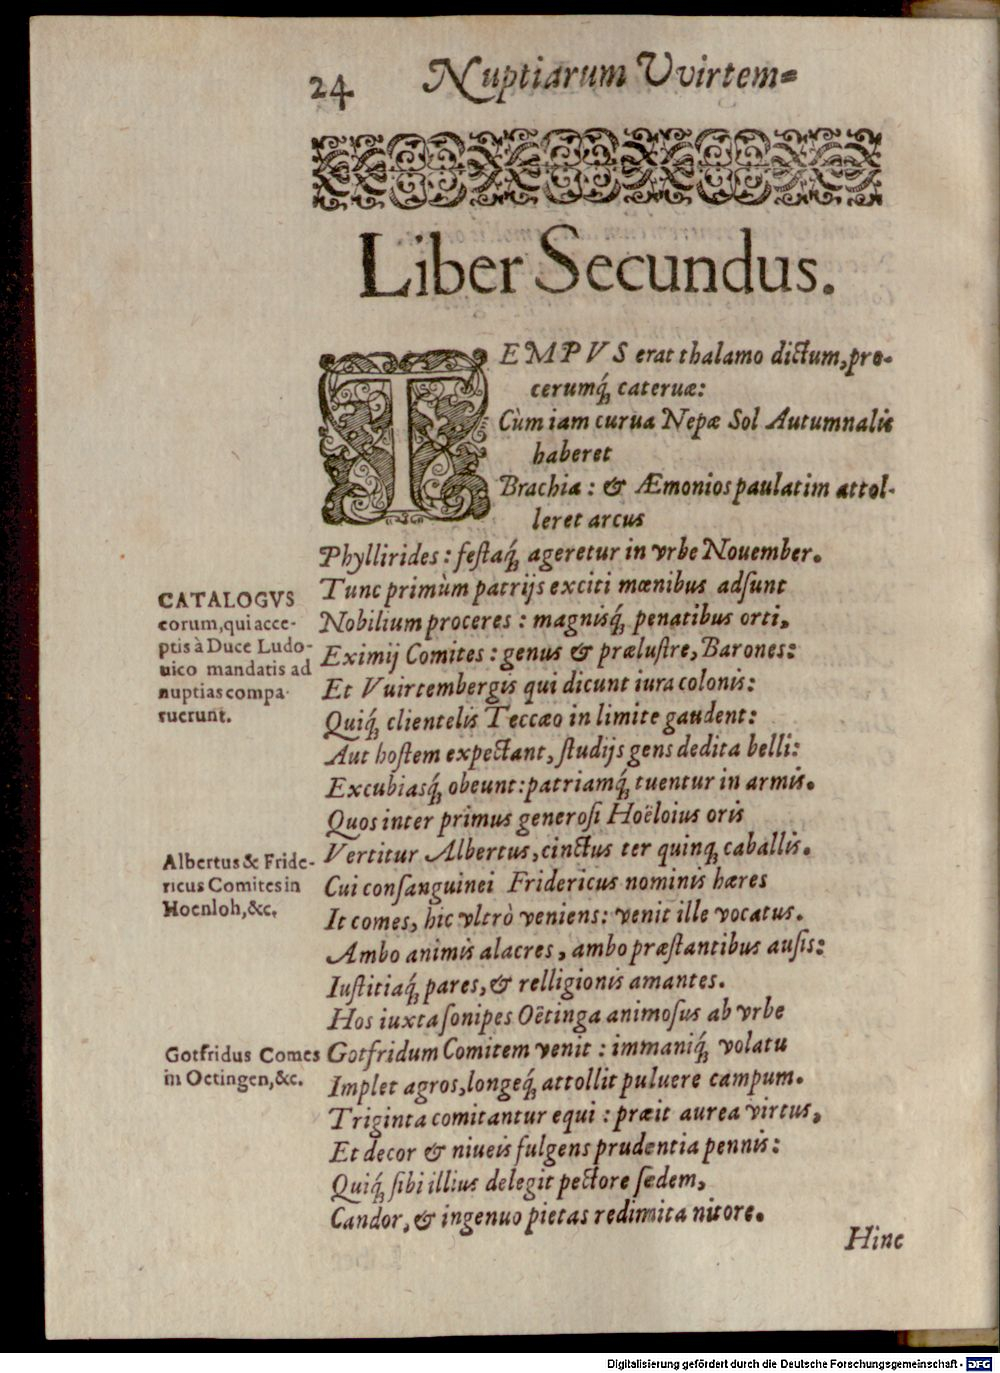 24 Nuptiarum Vvirtem=
Liber Secundus.
TEMPVS erat thalamo dictum, pro-
cerumq́ꝫ cateruæ:
Cùm iam curua Nepæ Sol Autumnalis
haberet
Brachia: & Æmonios paulatim attol-
leret arcus
Phyllirides: festaq́ꝫ ageretur in vrbe Nouember.
Tunc primùm patrijs exciti mœnibus adsunt
Nobilium proceres: magnisq́ꝫ penatibus orti,
Eximij Comites: genus & prælustre, Barones:
Et Vuirtembergis qui dicunt iura colonis:
Quiq́ꝫ clientelis Teccæo in limite gaudent:
Aut hostem expectant, studijs gens dedita belli:
Excubiasq́ꝫ obeunt: patriamq́ꝫ tuentur in armis.
Quos inter primus generosi Hoëloius oris
Vertitur Albertus, cinctus ter quinqꝫ caballis.
Cui consanguinei Fridericus nominis hæres
It comes, hic vltrò veniens: venit ille vocatus.
Ambo animis alacres, ambo præstantibus ausis:
Iustitiaq́ꝫ pares, & relligionis amantes.
Hos iuxta sonipes Oëtinga animosus ab vrbe
Gotfridum Comitem venit: immaniq́ꝫ volatu
Implet agros, longeq́ꝫ attollit puluere campum.
Triginta comitantur equi: præit aurea virtus,
Et decor & niueis fulgens prudentia pennis:
Quiq́ꝫ sibi illius delegit pectore sedem,
Candor, & ingenuo pietas redimita nitore.
Hinc
CATALOGVS
eorum, qui acce-
ptis à Duce Ludo-
uico mandatis ad
nuptias compa-
ruerunt.
Albertus & Fride-
ricus Comites in
Hoenloh, &c.
Gotfridus Comes
in Oetingen, &c.
Digitalisierung gefördert durch die Deutsche Forschungsgemeinschaft - DFG